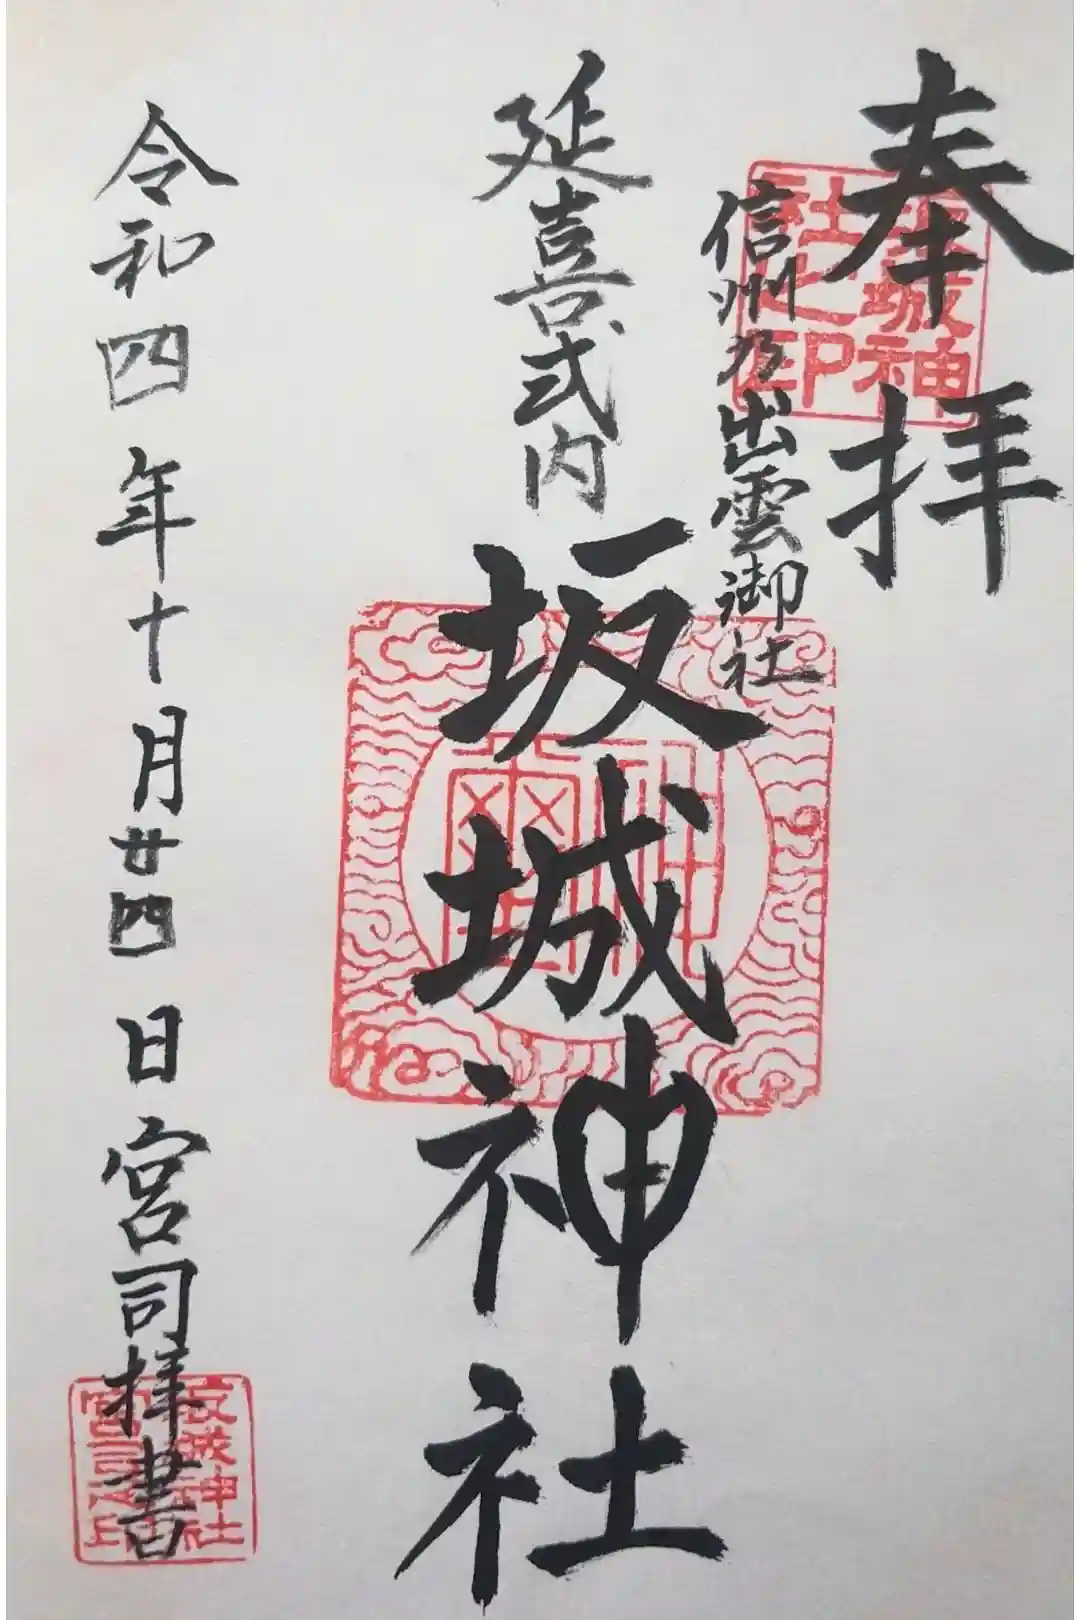 奉拝
信州乃出雲御社
坂城神社之印
延喜式内
坂城神社
神璽
令和四年十月廿四日宮司拝書
坂城神社
宮司之印